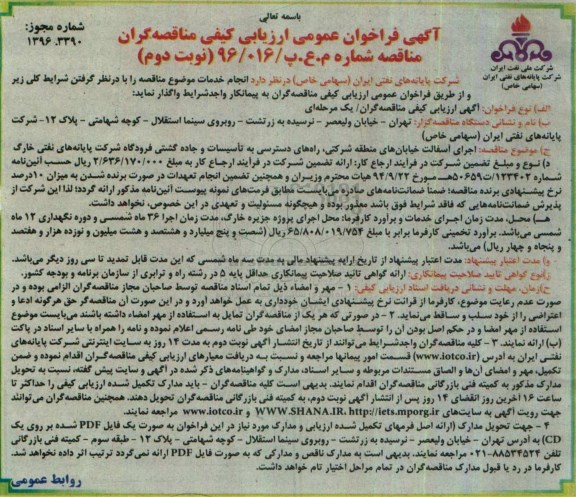 باسمه تعالی
شماره مجوز:
۱۳۹۶.۳۳۹۰
آگهی فراخوان عمومی ارزیابی کیفی مناقصه‌گران
مناقصه شماره م.ع.پ/۹۶/۰۱۶ (نوبت دوم)
شرکت ملی نفت ایران
شرکت پایانه‌های نفتی ایران
(سهامی خاص)
شرکت پایانه‌های نفتی ایران (سهامی خاص) درنظر دارد انجام خدمات موضوع مناقصه را با درنظر گرفتن شرایط کلی زیر
و از طریق فراخوان عمومی ارزیابی کیفی مناقصه‌گران به پیمانکار واجدشرایط واگذار نماید:
الف) نوع فراخوان: آگهی ارزیابی کیفی مناقصه‌گران/ یک مرحله‌ای
ب) نام و نشانی دستگاه مناقصه‌گزار: تهران - خیابان ولیعصر - نرسیده به زرتشت - روبروی سینما استقلال - کوچه شهامتی - پلاک ۱۲- شرکت
پایانه‌های نفتی ایران (سهامی خاص)
ج) موضوع مناقصه: اجرای آسفالت خیابان‌های منطقه شرکتی، راه‌های دسترسی به تأسیسات و جاده گشتی فرودگاه شرکت پایانه‌های نفتی خارگ
د) نوع و مبلغ تضمین شرکت در فرآیند ارجاع کار: ارائه تضمین شرکت در فرآیند ارجاع کار به مبلغ ۲/۶۳۶/۱۷۰/۰۰۰ ریال حسب آئین‌نامه
شماره ۱۲۳۴۰۲/ت۵۰۶۵۹هـ مورخ ۹۴/۹/۲۲ هیات محترم وزیران و همچنین تضمین انجام تعهدات در صورت برنده شدن به میزان ۱۰درصد
نرخ پیشنهادی برنده مناقصه: ضمناً ضمانت‌نامه‌های صادره می‌بایست مطابق فرمت‌های نمونه پیوست آئین‌نامه مذکور ارائه گردد؛ لذا این شرکت از
پذیرش ضمانت‌نامه‌هایی که فاقد شرایط فوق باشد معذور بوده و هیچگونه مسئولیت و تعهدی در این خصوص، نخواهد داشت.
هـ) محل، مدت زمان اجرای خدمات و برآورد کارفرما: محل اجرای پروژه جزیره خارگ، مدت زمان اجرا ۳۶ ماه شمسی و دوره نگهداری ۱۲ ماه
شمسی می‌باشد. برآورد تخمینی کارفرما برابر با مبلغ ۶۵/۸۰۸/۰۱۹/۷۵۴ ریال (شصت و پنج میلیارد و هشتصد و هشت میلیون و نوزده هزار و هفتصد
و پنجاه و چهار ریال) می‌باشد.
و) مدت اعتبار پیشنهاد: مدت اعتبار پیشنهاد از تاریخ ارایه پیشنهاد مالی به مدت سه ماه شمسی که این مدت قابل تمدید تا سی روز دیگر می‌باشد.
ز)نوع گواهی تایید صلاحیت پیمانکاری: ارائه گواهی تائید صلاحیت پیمانکاری حداقل پایه ۵ در رشته راه و ترابری از سازمان برنامه و بودجه کشور.
ح)زمان، مهلت و نشانی دریافت اسناد ارزیابی کیفی: ۱ - مهر و امضاء ذیل تمام اسناد مناقصه توسط صاحبان مجاز مناقصه‌گران الزامی بوده و در
صورت عدم رعایت موضوع، کارفرما از قرائت نرخ پیشنهادی ایشان خودداری به عمل خواهد آورد و در این صورت آن مناقصه‌گر حق هرگونه ادعا و
اعتراضی را از خود سلب و ساقط می‌نماید. ۲ - در صورتی که هر یک از مناقصه‌گران تمایل به استفاده از مهر امضاء داشته باشند می‌بایست موضوع
استفاده از مهر امضا و در حکم اصل بودن آن را توسط صاحبان مجاز امضای خود طی نامه رسمی اعلام نموده و نامه را همراه با سایر اسناد در پاکت
(ب) ارائه نمایند. ۳ - کلیه مناقصه‌گران واجدشرایط می‌توانند از تاریخ انتشار آگهی نوبت دوم به مدت ۱۴ روز به سایت اینترنتی شرکت پایانه‌های
نفتی ایران به آدرس (www.iotco.ir) قسمت امور پیمانها مراجعه و نسبت به دریافت معیارهای ارزیابی کیفی مناقصه‌گران اقدام نموده و ضمن
تکمیل، مهر و امضای آن‌ها و الصاق مستندات مربوطه و سایر اسناد، مدارک و گواهینامه‌های ذکر شده در آگهی و سایت پیش گفته، نسبت به تحویل
مدارک مذکور به کمیته فنی بازرگانی مناقصه‌گران اقدام نمایند. بدیهی است کلیه مناقصه‌گران - باید مدارک تکمیل شده ارزیابی کیفی را حداکثر تا
ساعت ۱۶ آخرین روز انقضای ۱۴ روز پس از انتشار آگهی نوبت دوم، به کمیته فنی بازرگانی مناقصه‌گران تحویل دهند. همچنین مناقصه‌گران می‌توانند
جهت رویت آگهی به سایت‌های WWW.SHANA.IR، http://iets.mporg.ir و www.iotco.ir مراجعه نمایند.
۴ - جهت تحویل مدارک (ارائه اصل فرمهای تکمیل شده ارزیابی و مدارک مورد نیاز در این فراخوان به صورت یک فایل PDF شده بر روی یک
CD) به آدرس تهران - خیابان ولیعصر - نرسیده به زرتشت - روبروی سینما استقلال - کوچه شهامتی - پلاک ۱۲ - طبقه سوم - کمیته فنی بازرگانی
تلفن ۸۸۵۳۴۵۲۴-۰۲۱ مراجعه نمایند. بدیهی است به مدارک ناقص و مدارکی که به صورت فایل PDF ارائه نگردد ترتیب اثر داده نخواهد شد.
کارفرما در رد یا قبول مدارک مناقصه‌گران در تمام مراحل اختیار تام خواهد داشت.
روابط عمومی